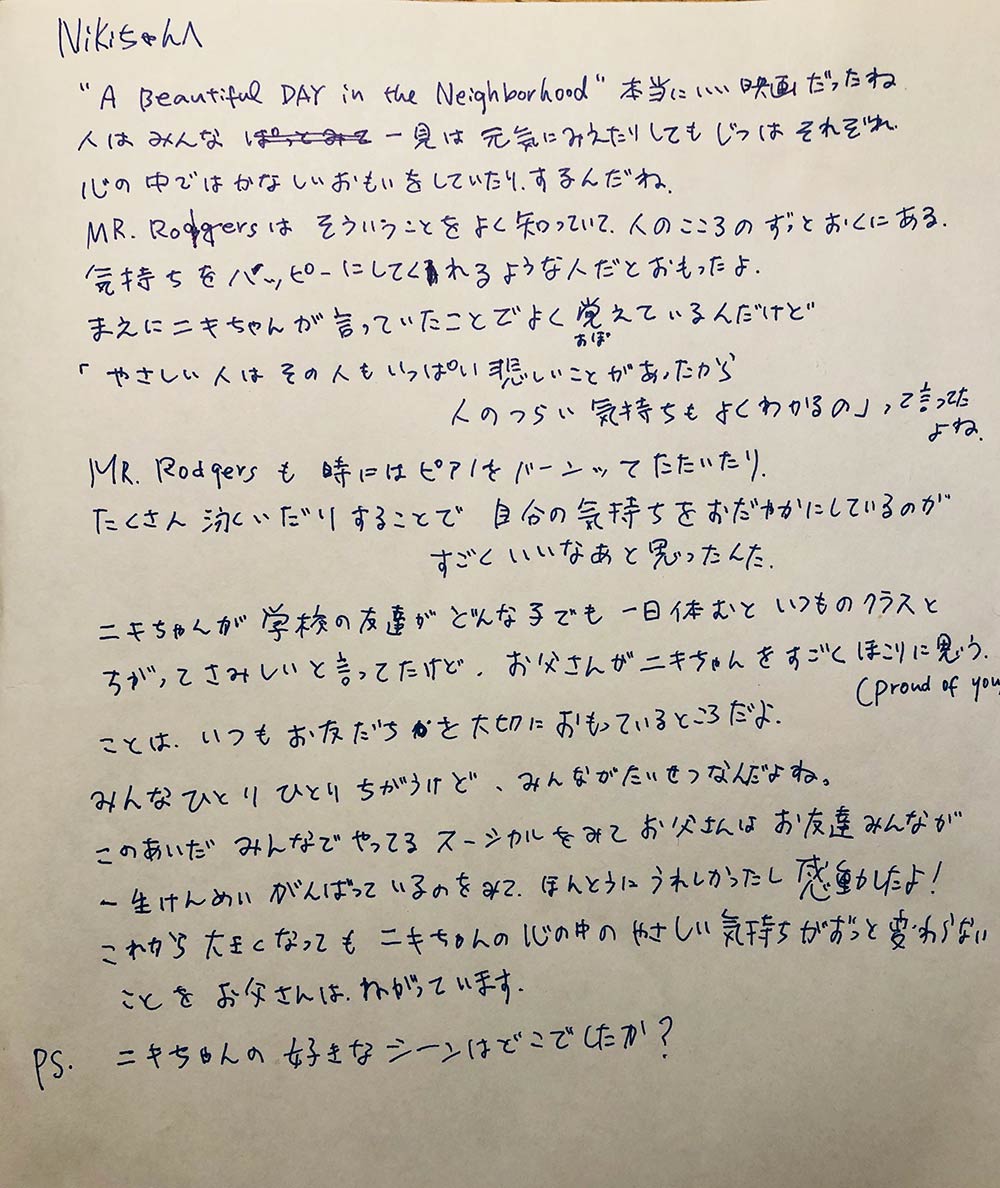 Nikiちゃんへ
"A Beautiful DAY in the Neighborhood" 本当にいい映画だったね
人はみんな ぱっとみて 一見は 元気にみえたりしても じつは それぞれ
心の中では かなしいおもいをしていたり、するんだね。
MR. Rodgersは そういうことをよく知っていて、人のこころのずっとおくにある、
気持ちをハッピーにしてくれるような人だとおもったよ。
まえにニキちゃんが言っていたことでよく覚えているんだけど
おぼ
「やさしい人は その人もいっぱい悲しいことがあったから
人のつらい気持ちも よくわかるの」って言ってた
よね。
MR. Rodgersも 時にはピアノをバーンッてたたいたり、
たくさん 泳いだりすることで 自分の気持ちをおだやかにしているのが
すごくいいなあと思ったんだ。
ニキちゃんが 学校の友達が どんな子でも 一日休むと いつものクラスと
ちがってさみしいと言ってたけど、お父さんがニキちゃんをすごくほこりに思う。
(Proud of you
ことは、いつもお友だちを大切におもっているところだよ。
みんなひとりひとりちがうけど、みんながたいせつなんだよね。
このあいだ みんなでやってる ミュージカルをみて お父さんは お友達みんなが
一生けんめい がんばっているのをみて、ほんとうにうれしかったし感動したよ!
これから 大きくなっても ニキちゃんの心の中の やさしい気持ちがずっと変わらない
ことを お父さんは、ねがっています。
PS. ニキちゃんの 好きなシーンはどこでしたか?